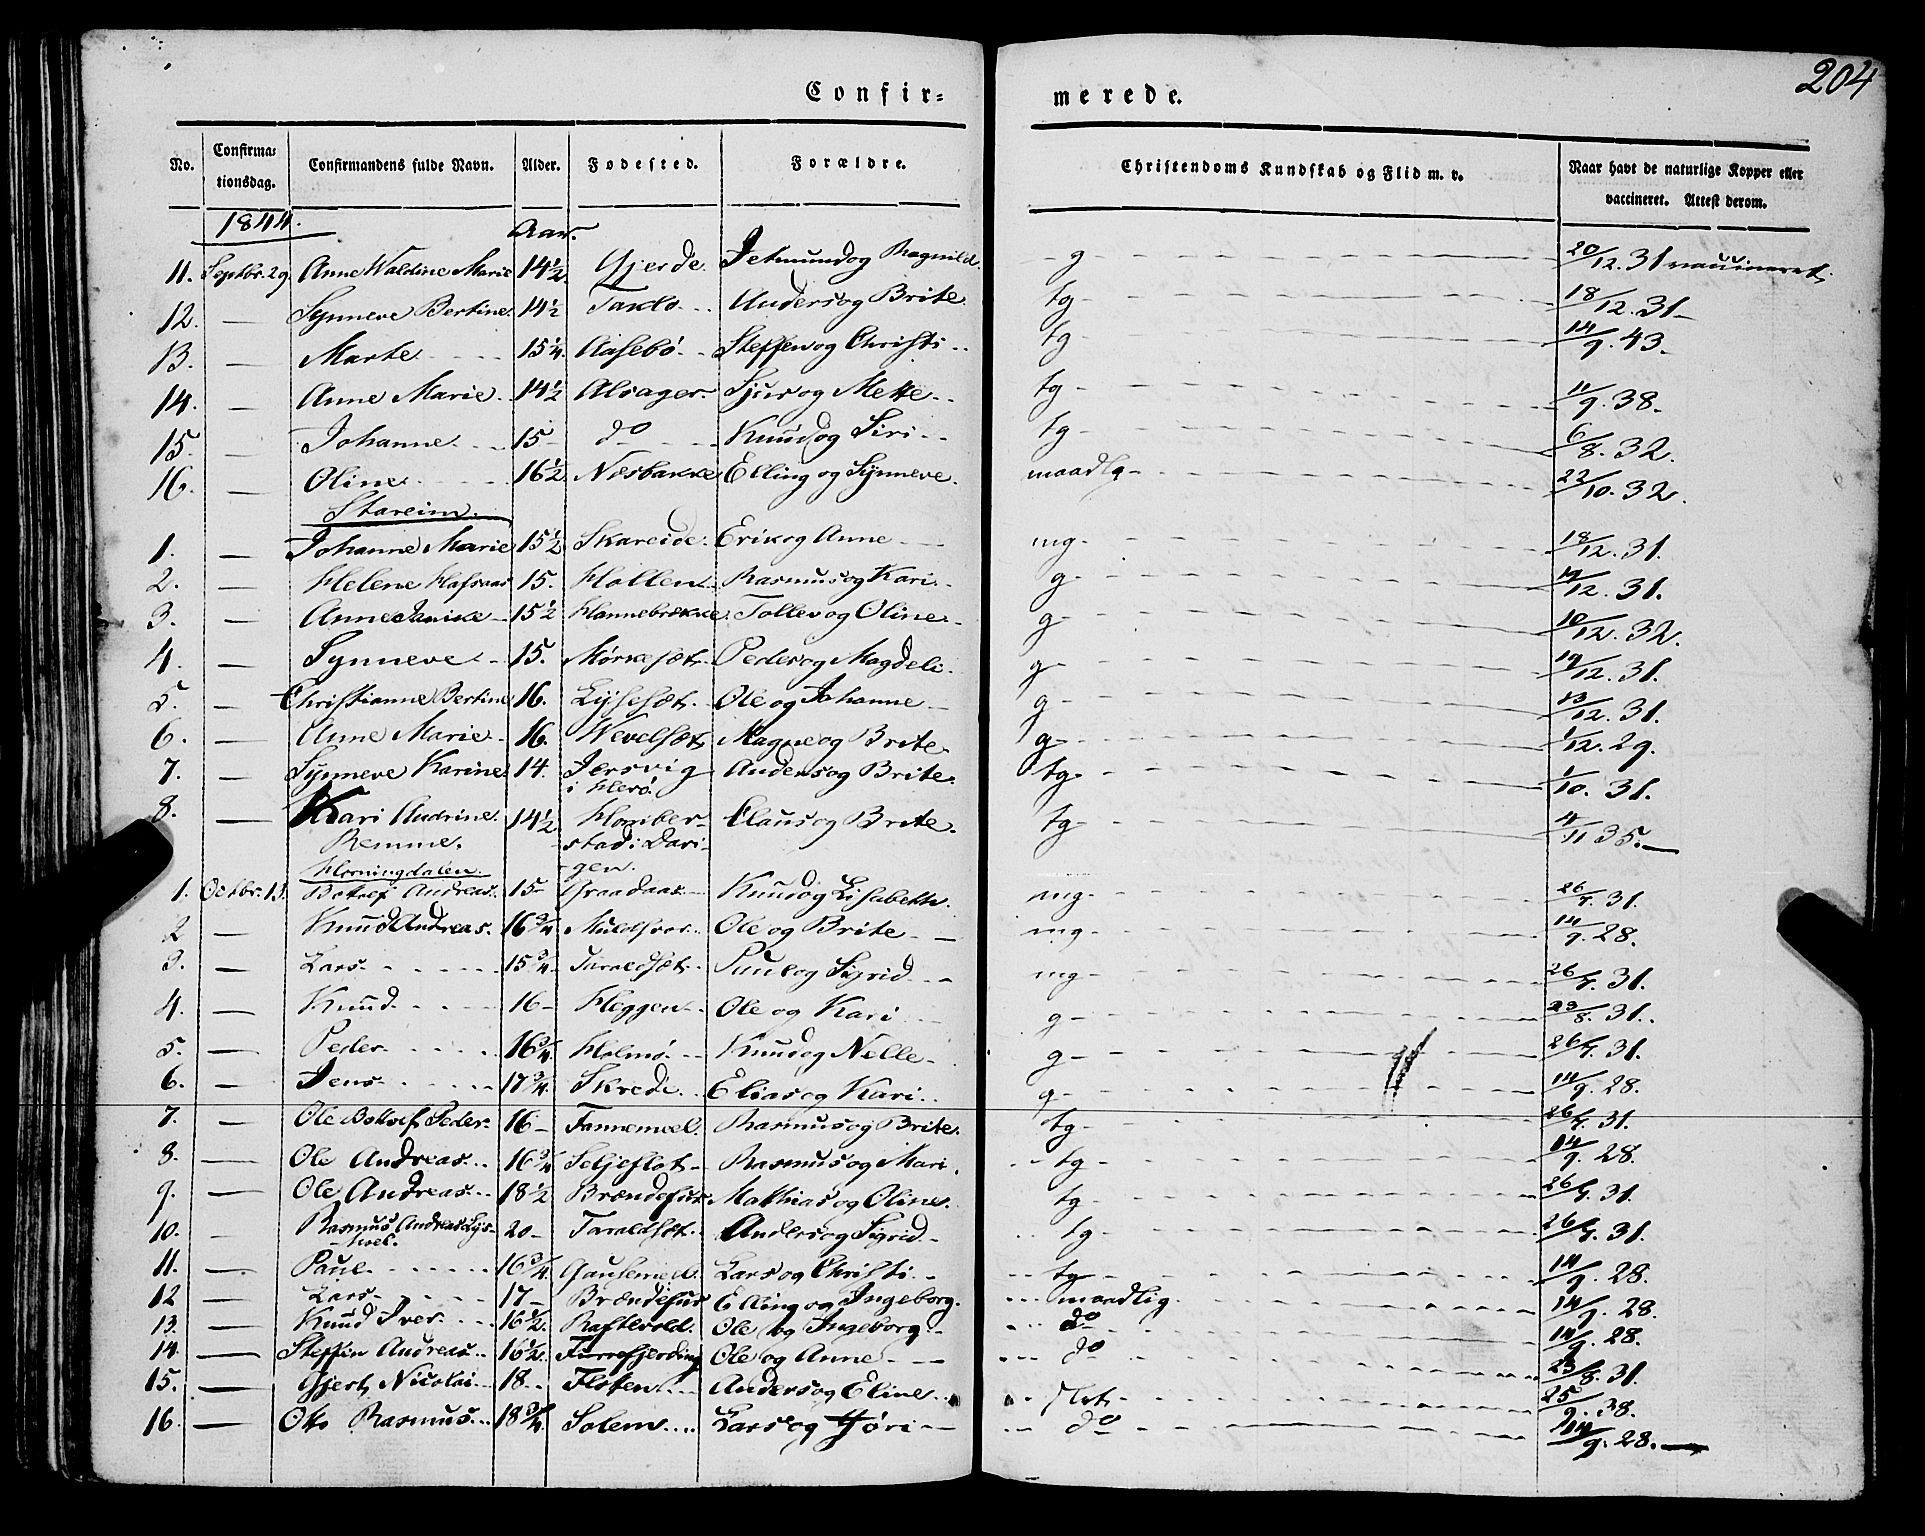 204
Confir=merede.
No. Confirmationsdag. Confirmandens fulde Navn. Alder. Fodested. Forældre. Christendoms Kundskab og Flid m. v. Naar havt de naturlige Kopper eller vaccineret. Attest derom.
1844. Aar.
11. Septbr. 29. Anne Waldine Marie 14½ Gjerde. Detmund og Ragnild. g 20/12. 31 vaccineret.
12. — Synneve Bertine. 14½ Taklo Anders og Brite. tg 18/12. 31
13. — Marte 15¼ Aasebö Steffen og Christi tg 14/9. 43.
14. — Anne Marie 14½ Alsager Sjur og Mette tg 11/9. 38.
15. — Johanne 15 do Knud og Siri tg 6/8. 32.
16. — Oline 16½ Nesbakke Elling og Synneve. maadlg 22/10. 32.
Stareim.
1. — Johanne Marie 15½ Skareide. Erik og Anne mg 18/12. 31.
2. — Helene Hafsaas 15. Hollen Rasmus og Kari g 14/12. 31.
3. — Anne Janike 15½ Hannebrekke Tollev og Oline g 10/12. 32.
4. — Synneve 15. Mørkesæt Peder og Magdeli g 19/12. 31.
5. — Christianne Bertine 16. Lysesæt Ole og Johanne g 13/12. 31.
6. — Anne Marie 16. Wevelsæt Magne og Brite g 1/12. 29.
7. — Synneve Karine 14. Jersvig i Herö. Anders og Brite. tg 1/10. 31.
8. — Kari Andrine Remme. 14½ Homberstad i Davigen. Claus og Brite. tg 4/11 35.
Horningdalen.
1. Octbr. 13. Botolf Andreas 15 Graadaas Knud og Lisabeth mg 26/7. 31.
2 — Knud Andreas. 16¾ Muldsvor Ole og Brite mg 14/9. 28.
3. — Lars 15¾ Taraldsæt Paul og Sigrid mg 26/7. 31.
4. — Knud 16 Heggen Ole og Kari g 23/8. 31.
5. — Peder 16¾ Holmö Knud og Nelle g 26/7. 31.
6. — Jens 17¾ Skrede Elias og Kari g 14/9. 28.
7. — Ole Botolf Peder 16 Tannemoel. Rasmus og Brite. tg 26/7. 31.
8. — Ole Andreas 16¾ Seljeflot Rasmus og Mari tg 14/9. 28.
9. — Ole Andreas 18½ Brændehus Mathias og Oline tg 26/7. 31.
10. — Rasmus Andreas 20 Taraldsæt Anders og Sigrid tg 26/7. 31.
11. — Paul 16¾ Gausemel. Lars og Christi tg 14/9. 28.
12 — Lars 17 Brændehus Elling og Ingeborg. maadlig 14/9. 28.
13. — Knud Iver 16½ Raftevold. Ole og Ingeborg do 14/9. 28.
14. — Steffen Andreas 16½ Ole og Anne do 23/8. 31.
15. — Gjert Nicolai 18 Floten Anders og Eline slet 25/9. 38.
16. — Ole Rasmus 18¾ Solem Lars og Jöri do 14/9. 28.